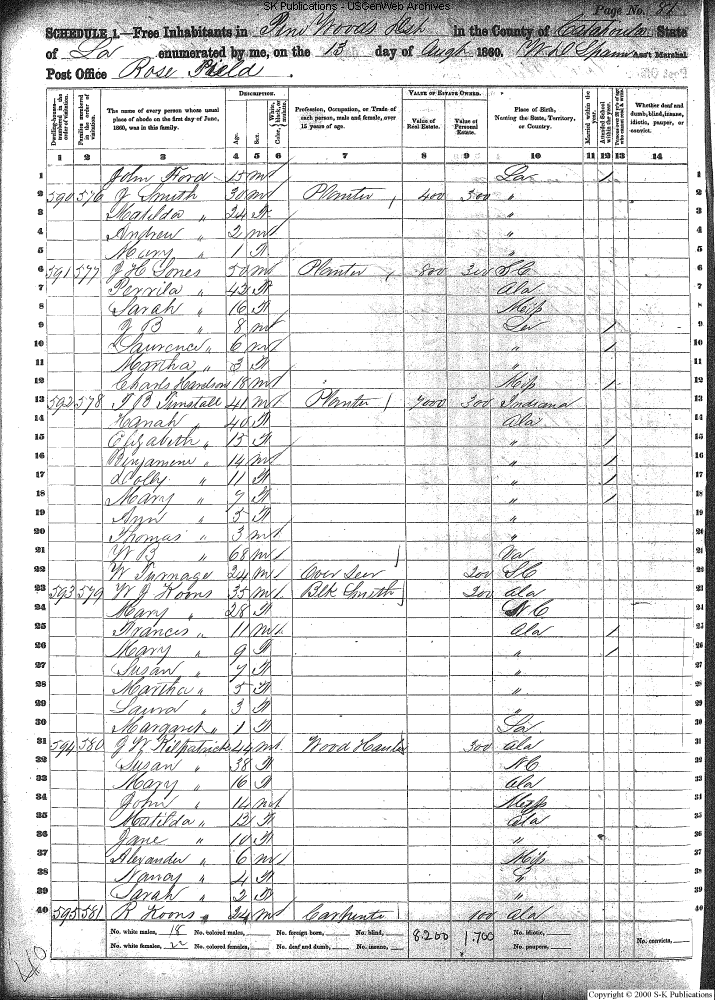 SK Publications - USGenWeb Archives
Page No. 81
SCHEDULE 1.—Free Inhabitants in Pine Woods in the County of Catahoula State
of La enumerated by me, on the 13 day of Augh 1860. Ass't Marshal
Post Office Rose Field.
DESCRIPTION. VALUE OF ESTATE OWNED.
Dwelling-houses—numbered in the order of visitation. Families numbered in the order of visitation. The name of every person whose usual place of abode on the first day of June, 1860, was in this family. Age. Sex. Color, White, black, or mulatto. Profession, Occupation, or Trade of each person, male and female, over 15 years of age. Value of Real Estate. Value of Personal Estate. Place of Birth, Naming the State, Territory, or Country. Married within the year. Attended School within the year. Whether deaf and dumb, blind, insane, idiotic, pauper, or convict.
1 2 3 4 5 6 7 8 9 10 11 12 13 14
1 John Ford 15 m La / 1
2 590 576 J Smith 30 m Planter 400 300 " 2
3 Matilda " 24 F " 3
4 Andrew " 2 m " 4
5 Mary " 1 F " 5
6 591 577 J H Jones 50 m Planter 800 300 S C 6
7 Perrila " 42 F Ala 7
8 Sarah " 16 F Miss 8
9 J B " 8 m / 9
10 Laurence " 6 m " / 10
11 Martha " 3 F " 11
12 Charls Hardson 18 m Miss / 12
13 592 578 T B Tunstall 41 m Planter 7000 300 Indiana 13
14 Hanah " 40 F Ala 14
15 Elizabeth " 15 F " / 15
16 Benjamine " 14 m " / 16
17 Dolly " 11 F " / 17
18 Mary " 7 F " / 18
19 Ann " 5 F " 19
20 Thomas " 3 m " 20
21 W B " 68 m Va 21
22 W Turnage 24 m Over Seer 200 S C 22
23 593 579 W J Koons 35 m Blk Smith 200 Ala 23
24 Mary " 28 F N C 24
25 Frances " 11 m Ala / 25
26 Mary " 9 F " / 26
27 Susan " 7 F " 27
28 Martha " 5 F " 28
29 Laura " 3 F " 29
30 Margaret " 1 F La 30
31 594 580 J W Kilpatrick 44 m Wood Hauler 300 Ala 31
32 Susan " 38 F N C 32
33 Mary " 16 F Ala 33
34 John " 14 m Miss 34
35 Matilda " 12 F Ala 35
36 Jane " 10 F " 36
37 Alexander " 6 m Miss 37
38 Nancy " 4 F 38
39 Sarah " 2 F " 39
40 595 581 R Koons " 24 m Carpenter 100 Ala 40
No. white males, 18 No. colored males, No. foreign born, No. blind, 8.200 1.700 No. idiotic, No. convicts,
No. white females, 22 No. colored females, No. deaf and dumb, No. insane, No. paupers,
40
Copyright © 2000 S-K Publications